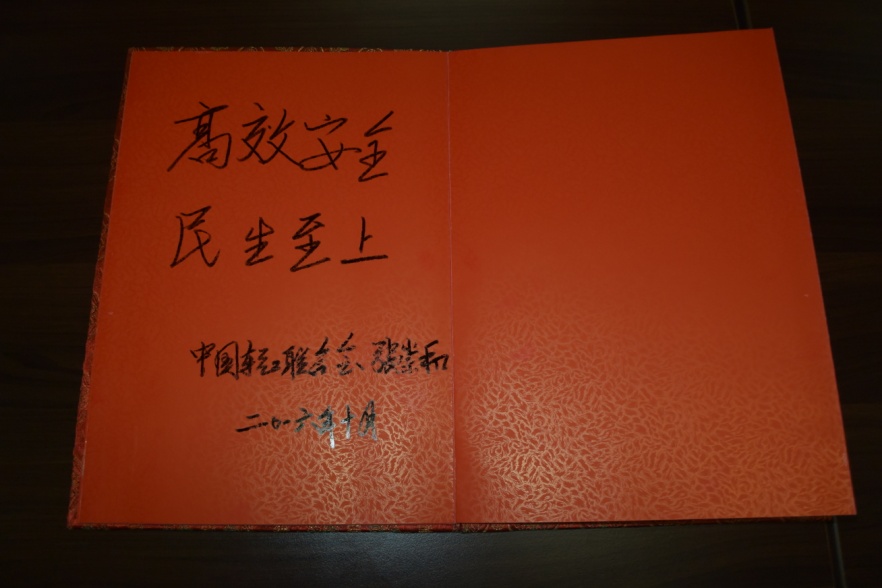 高效安全
民生至上
中国轻工联合会、张崇和
二〇一六年十月